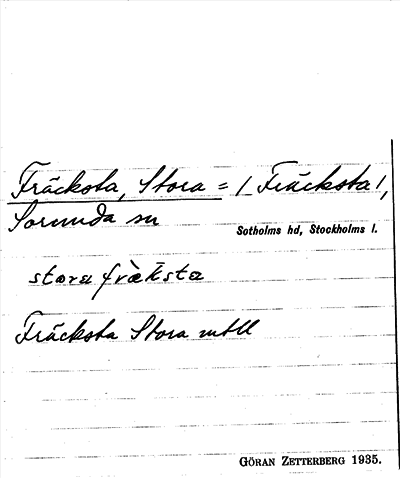 Fräcksta, Stora = / Fräcksta /,
Sorunda sn
Sotholms hd, Stockholms l.
stora fräksta
Fräcksta Stora
GÖRAN ZETTERBERG 1935.